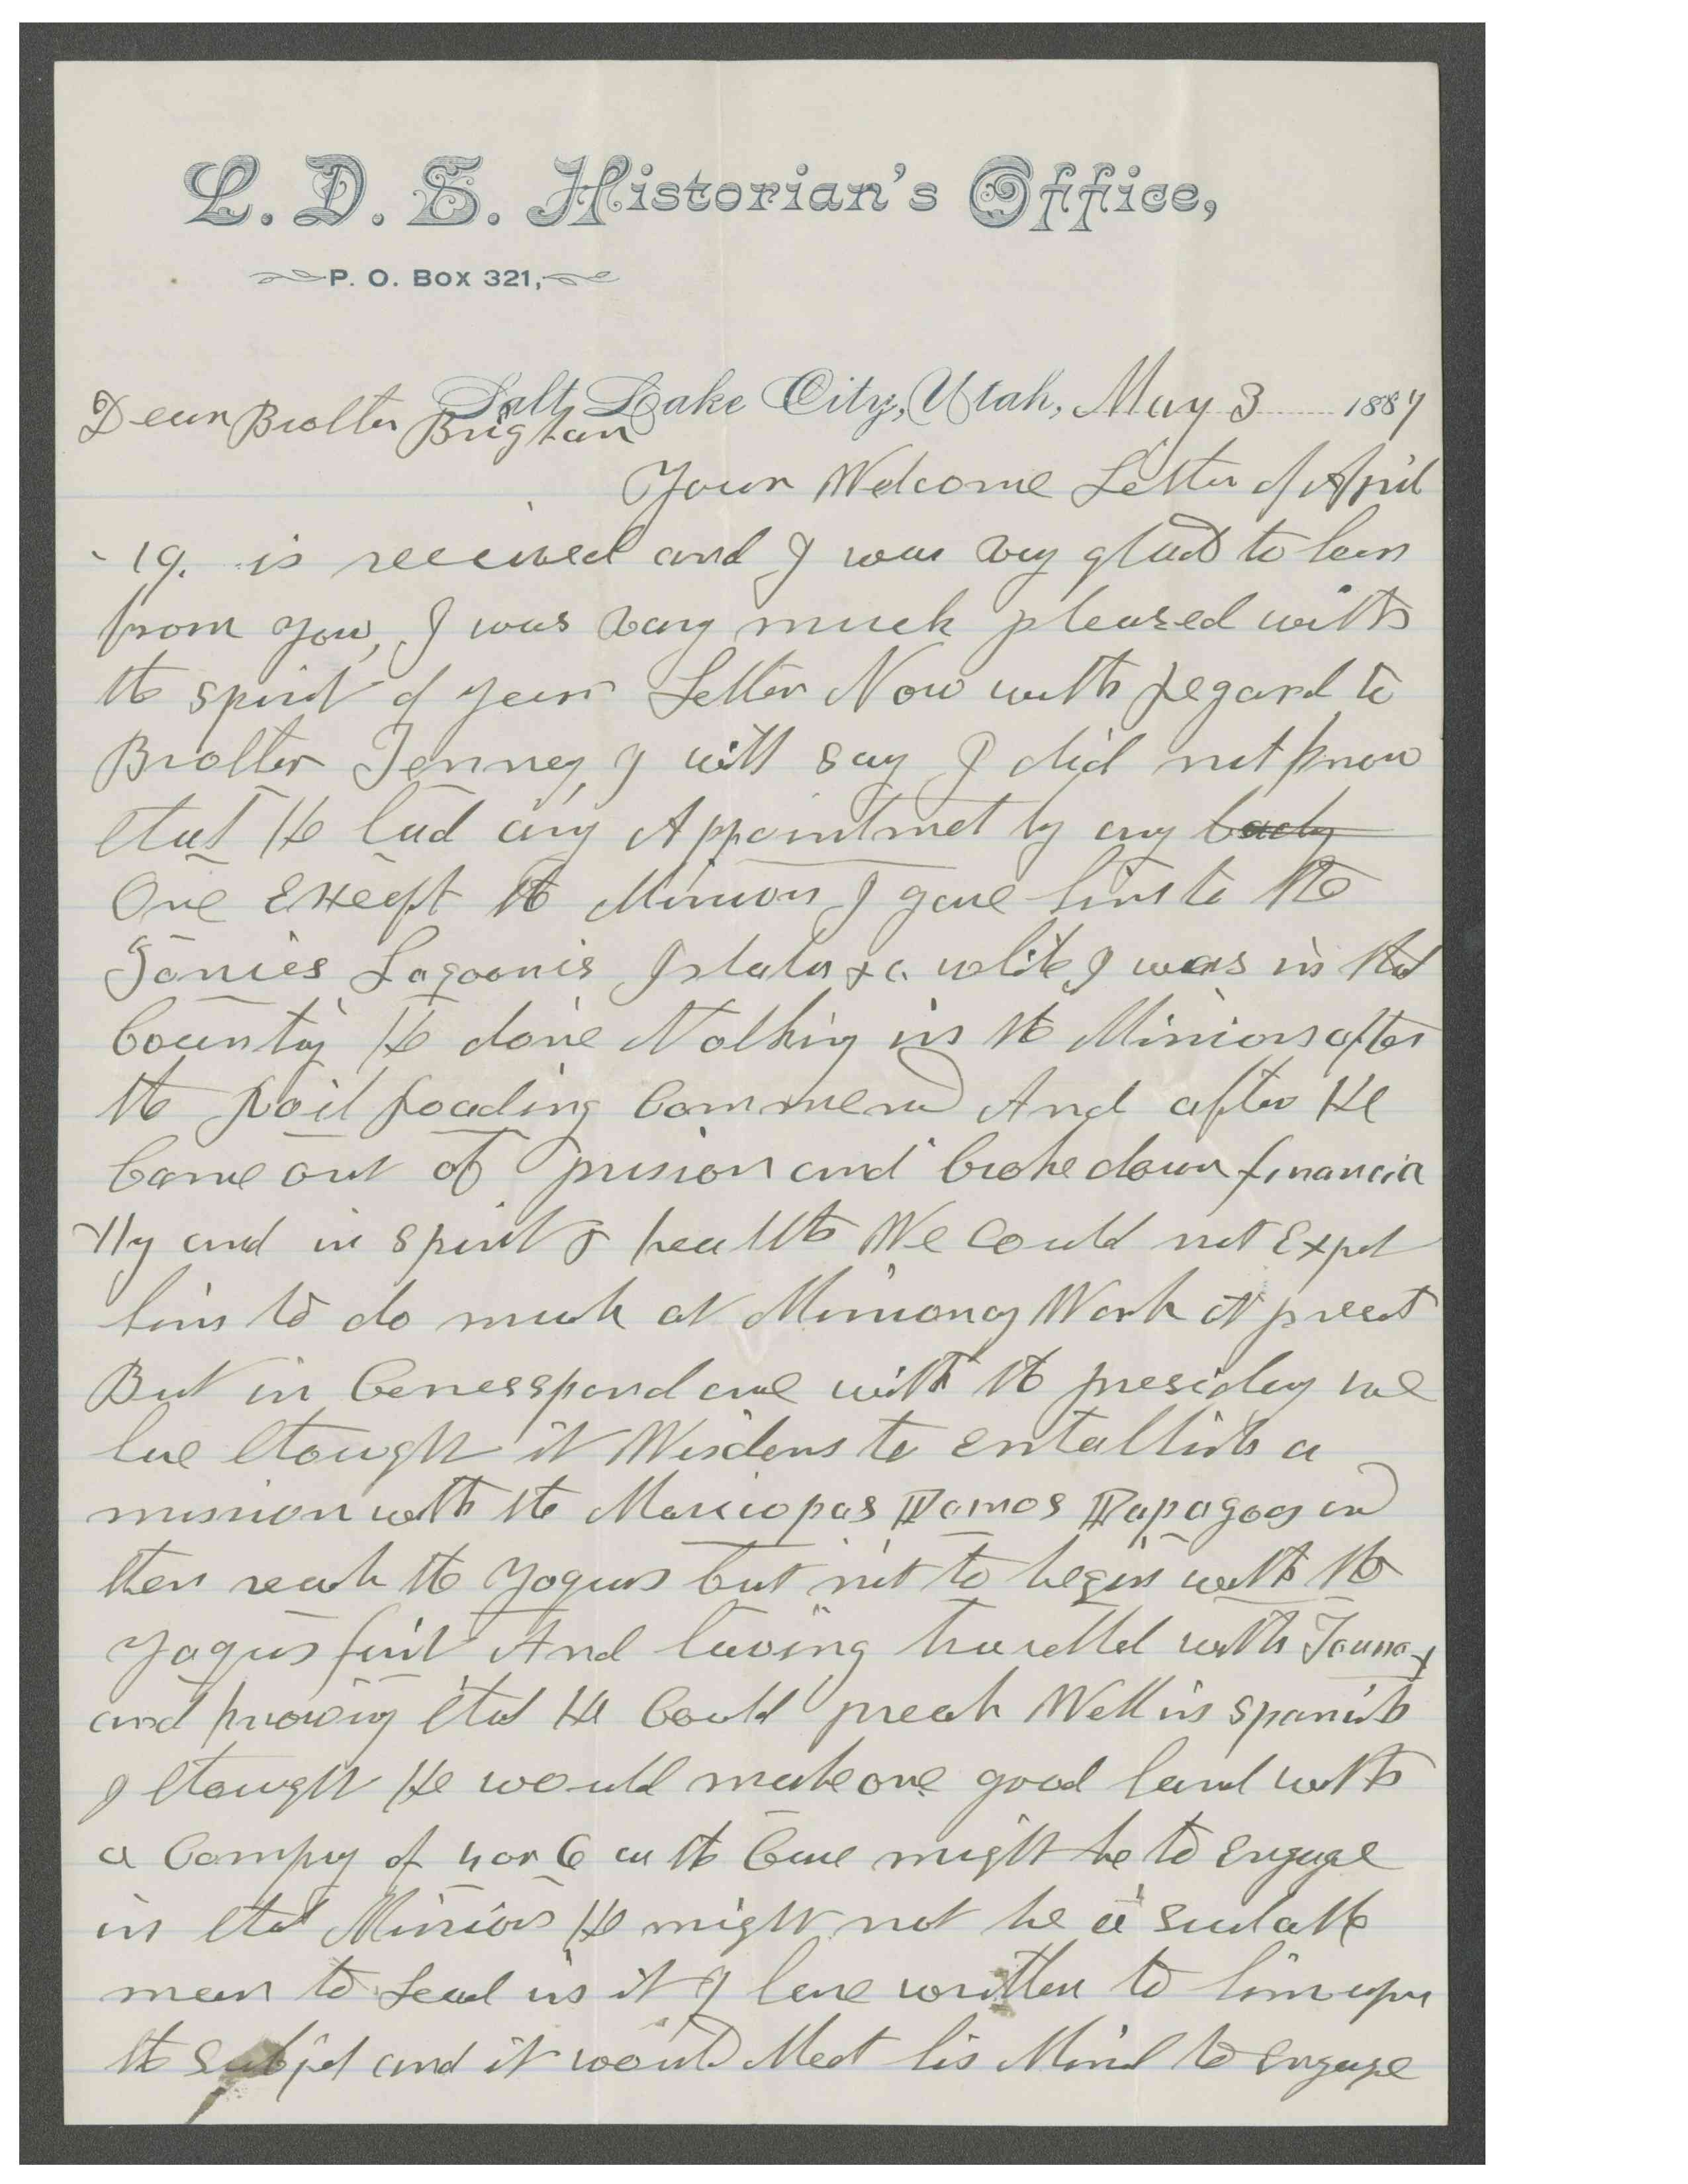 L. D. S. Historian's Office,
P. O. Box 321,
Salt Lake City, Utah, May 3 1887
Dear Brother Brigham
Your Welcome Letter of April
19. is received and I was very glad to hear
from you, I was vary much pleased with
the spirit of your Letter Now with regard to
Brother Tenney, I will say I did not know
that He had any Appointmet by any body
One Except the Mission I gave him to the
Zonies Lagoonis Islata &c. while I was in that
County He done Nothing in the Mission after
the Rail Roading Commencd And after He
Came out of prision and broke down financia
lly and in spirit & health We Could not Expet
him to do much at Missionay Work at preset
But in Corresspondance with the presidey we
have thought it Wisdom to establish a
mission with the Maricopas Pamos Papagoes and
then reach the Yaquis but not to begin with the
Yaquis first And having travelled with Tenney
and knowing that He Could preach Well in Spanish
I thought He would make one good hand with
a Compny of 4 or 6 as the Case might be to Engage
in that Mission He might not be a suitable
man to Lead in it I have written to him upon
the subjet and it would Meet his Mind to Engage